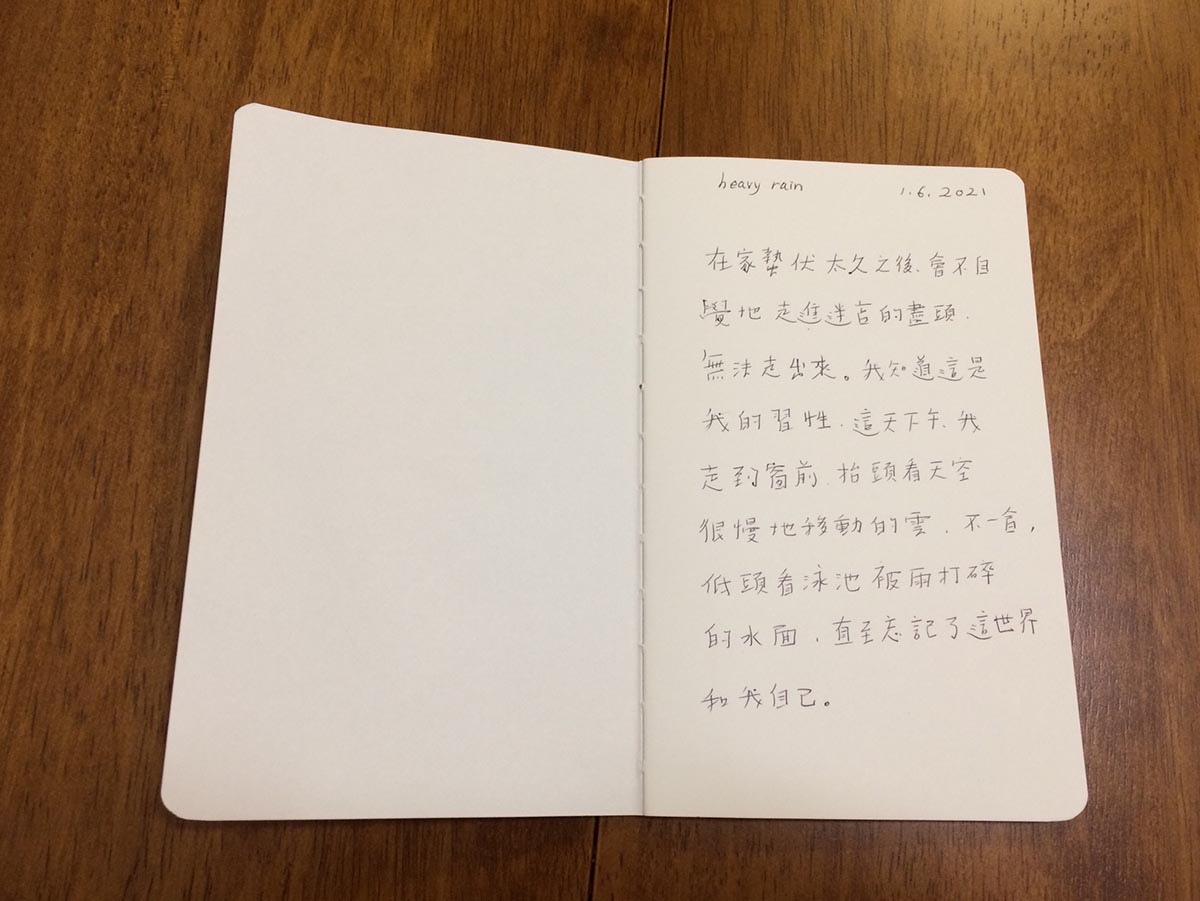 heavy rain 1.6.2021
在家蟄伏太久之後、會不自
覺地走進迷宮的盡頭、
無法走出來。我知道這是
我的習性、這天下午、我
走到窗前、抬頭看天空
很慢地移動的雲、不一會，
低頭看泳池被雨打碎
的水面、直至忘記了這世界
和我自己。